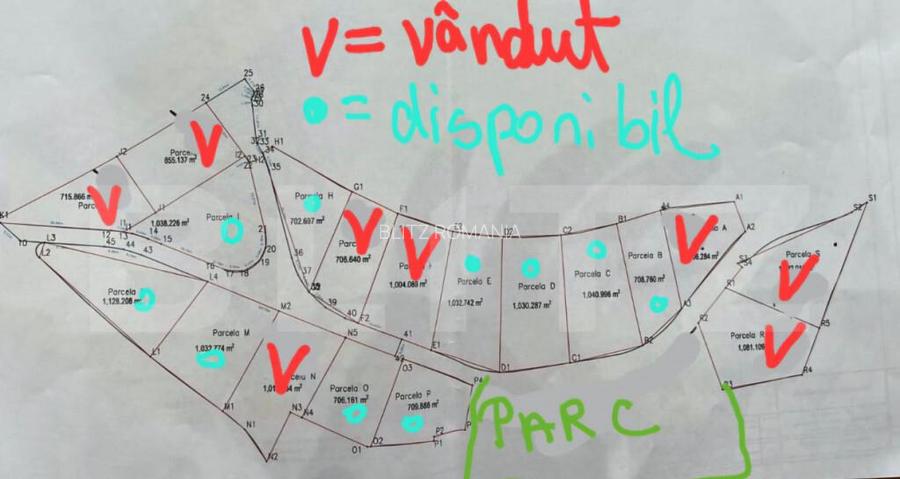 V = vândut
• = disponibil
25
24
31
H1
J2
Parce
855.137 m²
35
Parcela H
702.697 m²
G1
F1
715.866 m²
Parc
K1
1,038.226 m²
Parcela I
BLITZ ROMANIA
Parc
706.640 m²
1,004.083 m²
D2
C2
B1
A1
A2
S1
S2
10
L3
L2
12
13
14
15
45
44
43
17
18
19
20
21
Parcela E
1,032.742 m²
Parcela D
1,030.287 m²
Parcela C
1,040.996 m²
Parcela B
708.760 m²
A
Parcela S
Parcela
1,128.208 m²
L4
M2
37
39
40
F2
A3
R1
R2
Parcela M
1,032.774 m²
N5
41
E1
D1
C1
B2
Parcela R
1,081.109
R5
R4
L1
N
m²
Parcela O
706.161 m²
O3
Parcela P
709.886 m²
P4
M1
N3
N4
N1
N2
O1
O2
P2
P1
PARC